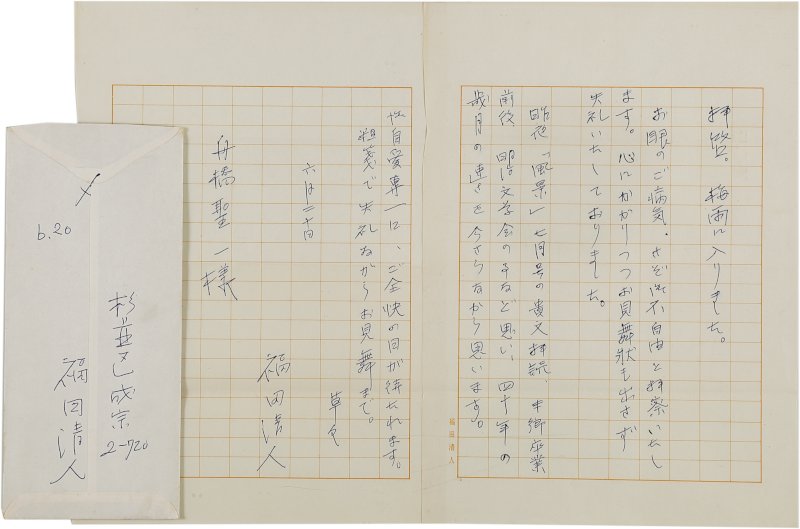 拝啓。梅雨に入りました。
お眼のご病気、さぞ御不自由と拝察いたし
ます。心にかかりつつお見舞状も出さず
失礼いたしておりました。
昨夜「風景」七月号の貴文拝読、御卒業
前後 明治文学会の事など思い、四十年の
歳月の速さを今さらながら思います。
御自愛専一に、ご全快の日が待たれます。
粗箋で失礼ながらお見舞まで。
草々
六月二十日
福田清人
舟橋聖一様
福田清人
6.20
杉並区成宗
2-720
福田清人